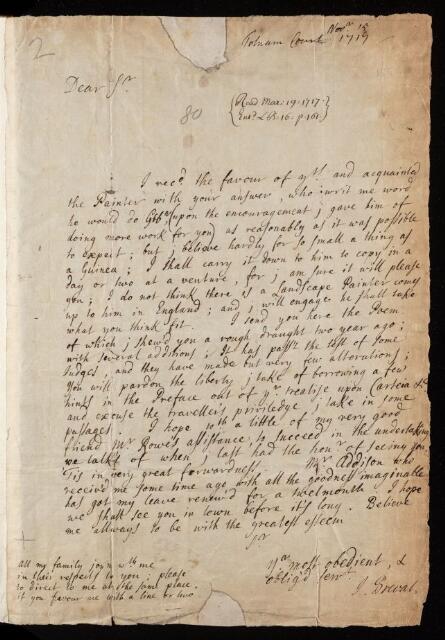 2
Totnam Court Novr. 15
1717
Dear Sr.
80
(Read Mar. 19. 1717.)
(Entd. LB. 16. p. 161.)
I recd. the favour of yrs. and acquainted
the Painter with your answer, who writ me word
he would do (upon the encouragement j gave him of
doing more work for you) as reasonably as it was possible
to expect; but j believe hardly for so small a thing as
a Guinea; I shall carry it down to him to copy in a
day or two at a venture, for j am sure it will please
you; I do not think there is a Landscape Painter comes
up to him in England; and j will engage he shall take
what you think fit. I send you here the Poem
of which j shew'd you a rough draught two year ago;
with several additions; It has pass'd the test of some
Judges, and they have made but very few alterations;
You will pardon the liberty j take of borrowing a few
hints in the Preface out of yr. treatise upon Carteia &c
and excuse the traveller's priviledge j take in some
passages. I hope wth. a little of my very good
friend Mr Rowe's assistance, to succeed in the undertaking
we talk'd of when j last had the honr. of seeing you,
'Tis in very great forwardness. Mr. Addison who
received me some time ago with all the goodness imaginable
has got my leave renew'd for a twelmonth. I hope
we shall see you in town before its long. Believe
me allways to be with the greatest esteem
Sr
Yr. most obedient, &
oblig'd servt.
J. Breval.
all my family joyn wth me
in their respects to you; please
to direct to me at the same place.
if you favour me with a line or two